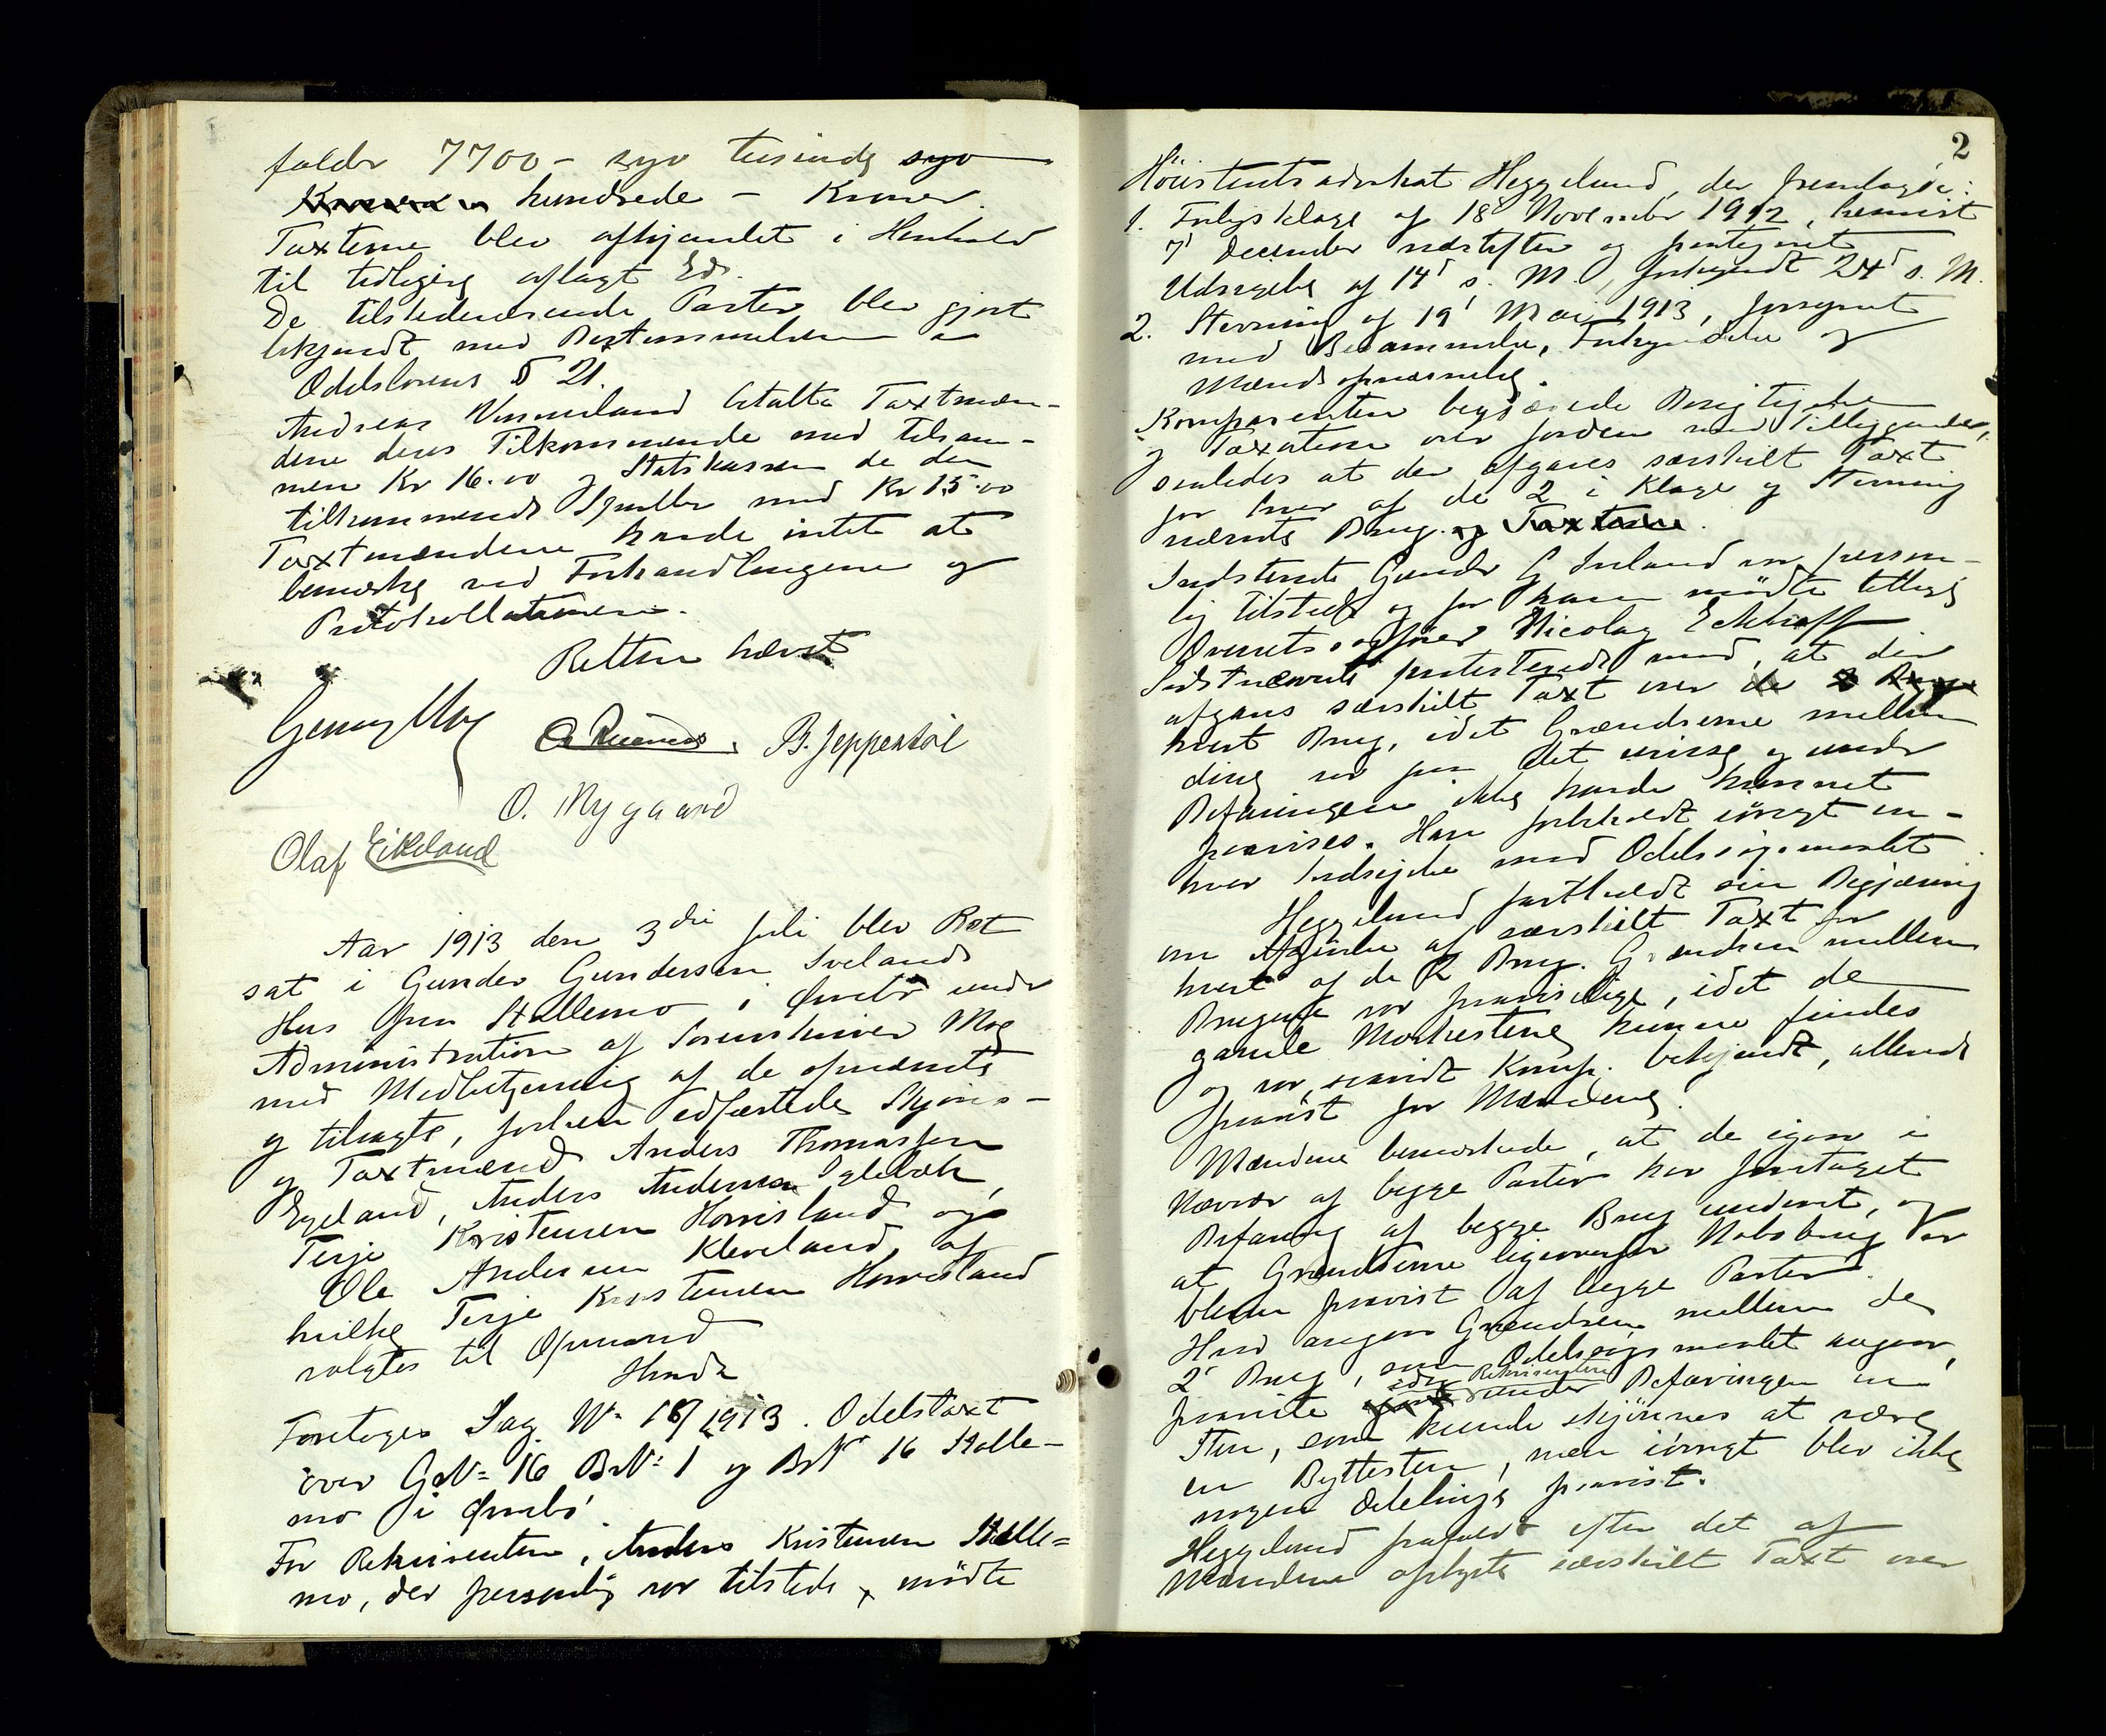 falder 7700 - syv tusinde syv
hundrede - Kroner.
Taxterne blev afhjemlet i Henhold
til tidligere aflagt Ed.
De tilstedeværende Parter blev gjort
bekjendt med Bestemmelsen i
Odelslovens § 21.
Andreas Vennesland betalte Taxtmæn-
dene deres Tilkommende med tilsam-
men Kr 16.00 og Statskassen de den
tilkommende Sportler med Kr 15.00
Taxtmændene havde intet at
bemærke ved Forhandlingerne og
Protokollationen.
Retten hævet
B. Jeppestøl
O. Nygaard
Olaf Eikeland
Aar 1913 den 3die Juli blev Ret
sat i Gunder Gundersen Ivelands
Hus paa Stallemo i Øvrebø under
Administration af Sorenskriver Moe
med Medbetjening af de opnævnte
og tilsagte, forhen edfæstede Skjøns-
og Taxtmænd Anders Thomassen
Egeland, Anders Andersen Iglebæk,
Terje Kristensen Homesland og
Ole Andersen Kleveland, af
hvilke Terje Kristensen Homesland
valgtes til Opmand
Hvorda
Foretoges Sag No 18/1913. Odelstaxt
over GNo 16 BrNo 1 og BrNo 16 Stalle-
mo i Øvrebø
For Rekvirenten, Anders Kristensen Stalle-
mo, der personlig var tilstede, mødte
2
Høiesteretsadvokat Heggelund, der fremlagde:
1. Forligsklage af 18 November 1912, henvist
7' December næstefter og paategnet
Udsigelse af 14' s. M., forkyndt 24' s. M.
2. Stevning af 19' Mai 1913, forsynet
med Berammelse, Forkyndelse og
Mændsopnævnelse.
Komparenten begjærede Besigtigelse
og Taxation over Jorden med Tilliggender,
saaledes at der afgaves særskilt Taxt
for hver af de 2 i Klage og Stevning
nævnte Brug. og Taxterne.
Indstevnte Gunder G Iveland var person-
lig tilstede og for ham mødte tillige
Overretssagfører Nicolay Eckhoff
Sidstnævnte protesterede mod, at der
afgaves særskilt Taxt over de 2 Brug
hvert Brug, idet Grændserne mellem
disse var paa det uvisse og under
Befaringen ikke havde kunnet
paavises. Han forbeholdt iøvrigt en-
hver Indsigelse mod Odelssøgsmaalet
Heggelund fastholdt sin Begjæring
om Afgivelse af særskilt Taxt for
hvert af de 2 Brug. Grændsen mellem
Brugene var paaviselige, idet de
gamle Markestene kunne findes
og var, saavidt Komp. bekjendt, allerede
paavist for Mændene.
Mændene bemærkede, at de igaar i
Nærvær af begge Parter har foretaget
Befaring af begge Brug underet, og
at Grændserne ligeoverfor Nabobrug var
bleven paavist af begge Parter.
Hvad angaar Grændsen mellem de
2 Brug, som Odelssøgsmaalet angaar,
paaviste Rekvirenten under Befaringen en
Sten, som kunde skjønnes at være
en Byttesten, men iøvrigt blev ikke
nogen Delelinje paavist.
Heggelund frafaldt efter det af
Mændene oplyste særskilt Taxt over